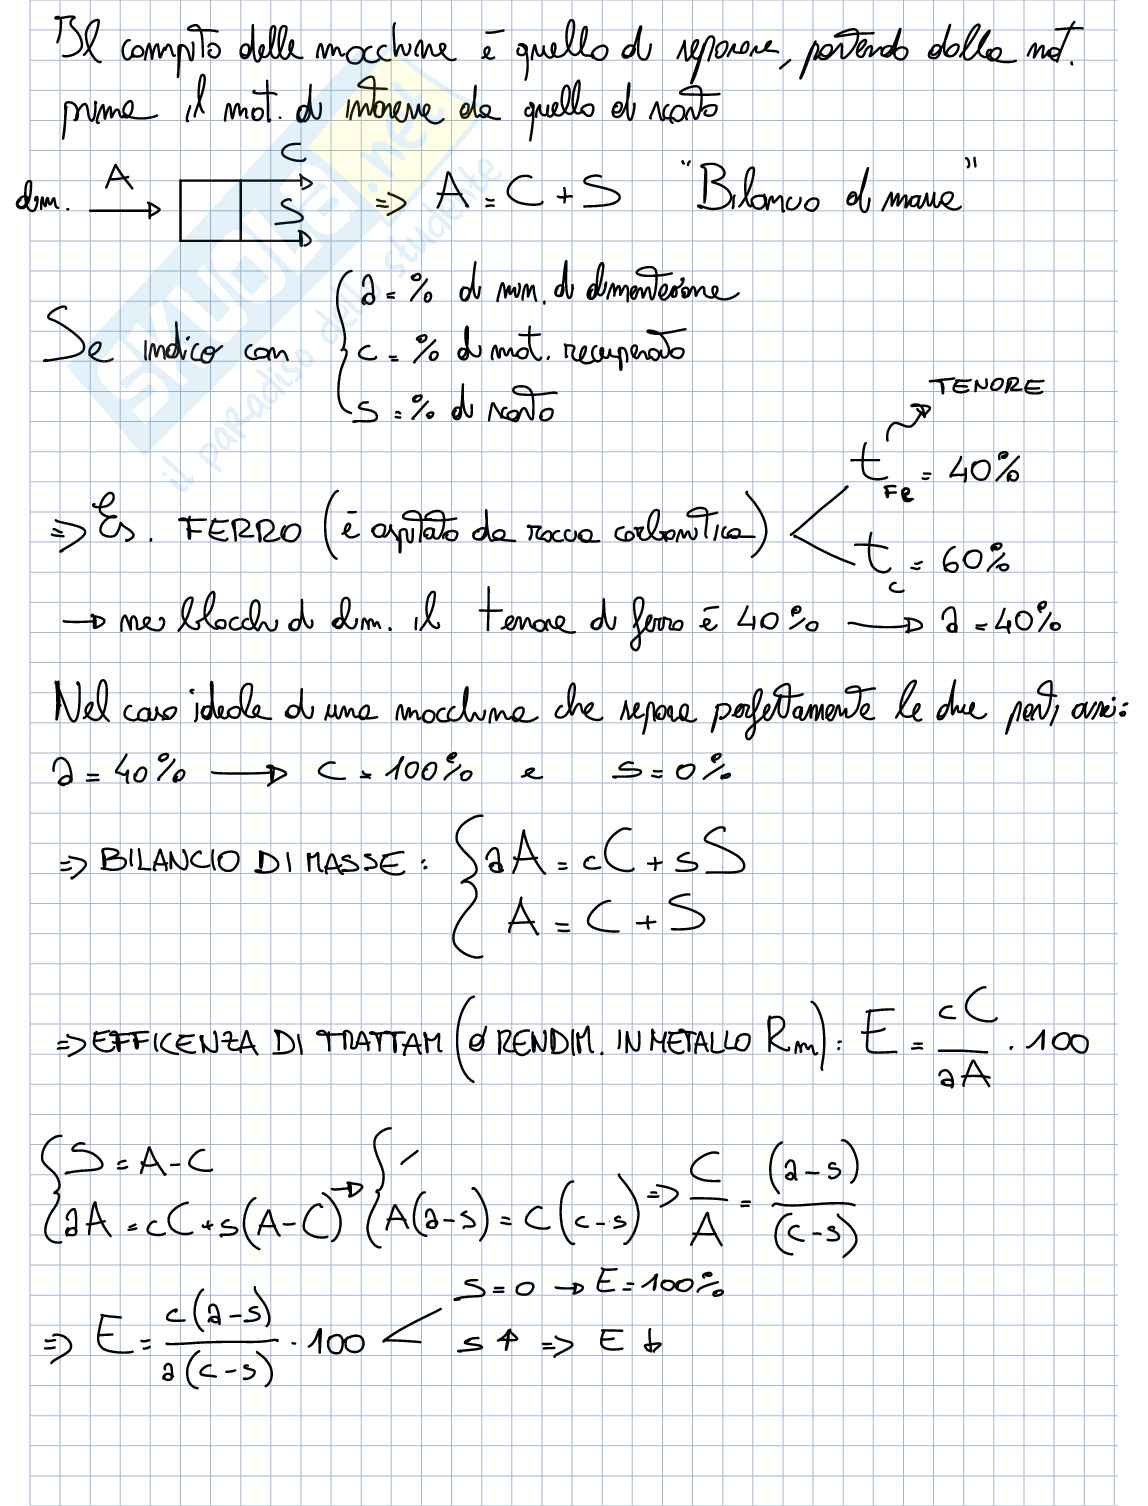 Il compito delle macchine è quello di separare, partendo dalla mat.
prima il mat. di interesse da quello di scarto
alim. A C S => A = C + S "Bilancio di masse"
Se indico con { a = % di min. di alimentazione
c = % di mat. recuperato
s = % di scarto
TENORE
t Fe = 40%
=> Es. FERRO (è ospitato da roccia carbonatica)
t c = 60%
→ nei blocchi di alim. il tenore di ferro è 40% → a = 40%
Nel caso ideale di una macchina che separa perfettamente le due parti, avrei:
a = 40% → c = 100% e s = 0%
=> BILANCIO DI MASSE: { aA = cC + sS
A = C + S
=> EFFICENZA DI TRATTAM (o RENDIM. IN METALLO Rm): E = cC / aA · 100
{ S = A - C
aA = cC + s(A - C) → { A(a - s) = C(c - s) => C / A = (a - s) / (c - s)
=> E = c(a - s) / a(c - s) · 100 < s = 0 → E = 100%
s ↑ => E ↓
SKUOLA.net
il paradiso dello studente